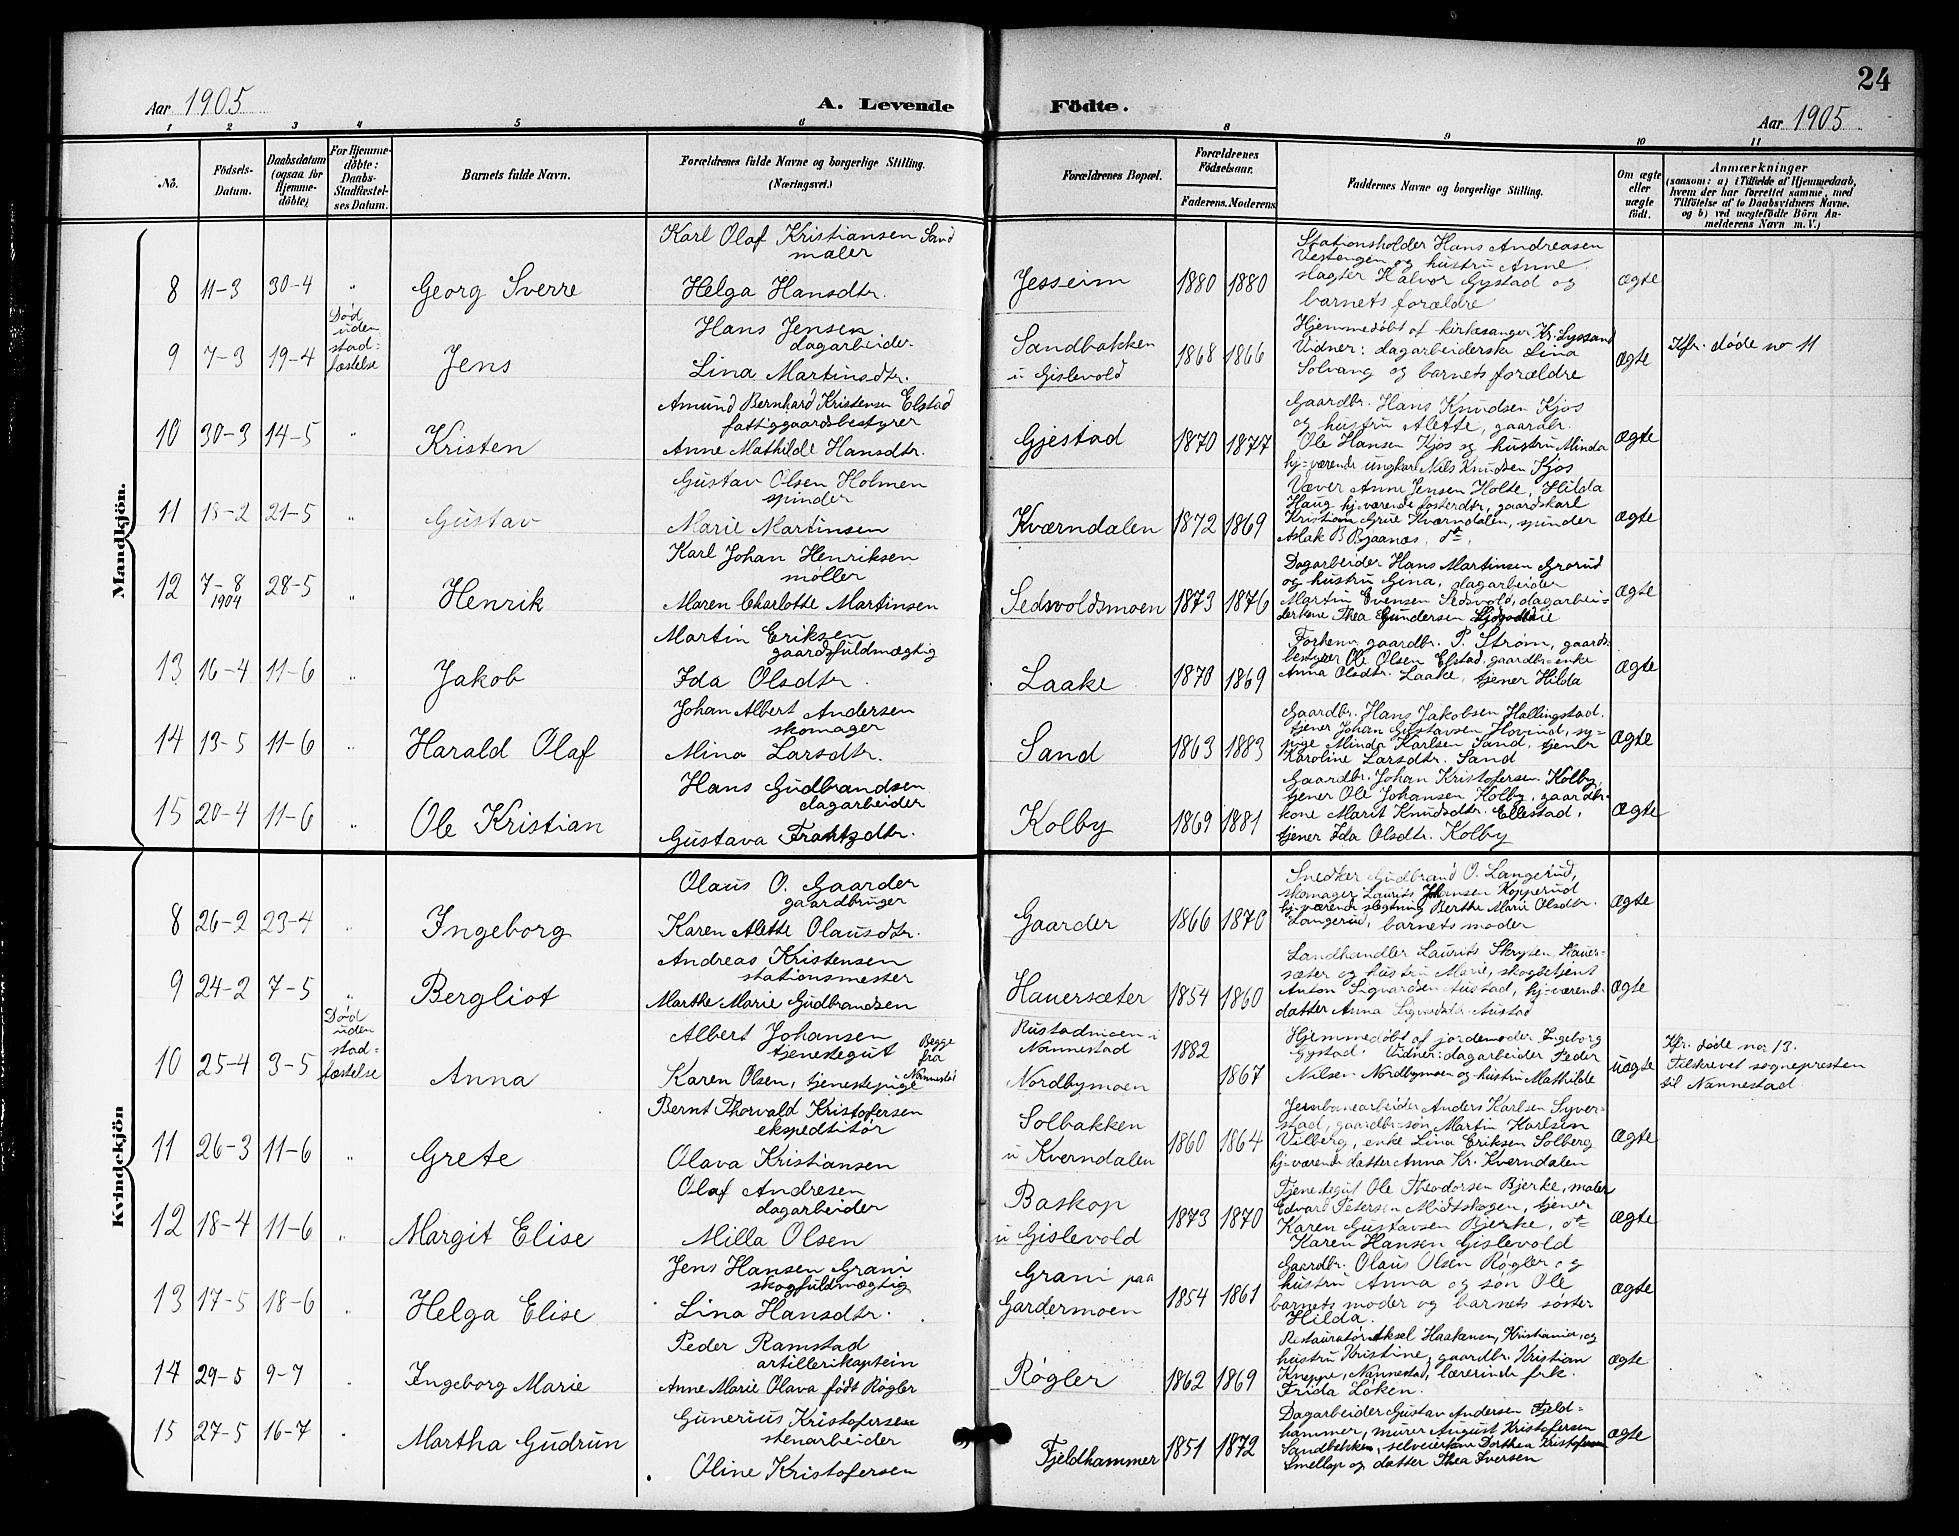 24
Aar 1905
A. Levende
Födte.
Aar 1905
1 2 3 4 5 6 8 9 10 11
No.
Födsels-
Datum.
Daabsdatum
(ogsaa for
Hjemme-
döbte)
For Hjemme-
döbte:
Daabs-
Stadfæstel-
ses Datum.
Barnets fulde Navn.
Forældrenes fulde Navne og borgerlige Stilling.
(Næringsvei.)
Forældrenes Bopæl.
Forældrenes
Födselsaar.
Faderens. Moderens.
Faddernes Navne og borgerlige Stilling.
Om ægte
eller
uægte
født.
Anmærkninger
(saasom: a) i Tilfælde af Hjemmedaab,
hvem der har forrettet samme, med
Tilföielse af to Daabsvidners Navne.
og b) ved uægtefödte Börn An-
melderens Navn m.V.)
Mandkjön.
8 11-3 30-4 " Georg Sverre
Karl Olaf Kristiansen Sand
maler
Helga Hansdtr.
Jesseim 1880 1880
Stationsholder Hans Andreasen
Vestengen og hustru Anne
slagter Halvor Gystad og
barnets forældre
ægte
9 7-3 19-4
Død
uden
stad=
fæstelse
Jens
Hans Jensen
dagarbeider
Lina Martinsdtr.
Sandbakken
u Gislevold
1868 1866
Hjemmedøbt af kirkesanger Kr. Lyssand
Vidner: dagarbeiderske Lina
Solvang og barnets forældre
ægte
Kfr. døde no 11
10 30-3 14-5 " Kristen
Amund Bernhard Kristensen Elstad
fattiggaardsbestyrer
Anne Mathilde Hansdtr.
Gjestad 1870 1877
Gaardbr. Hans Knudsen Kjos
og hustru Alette, gaardbr.
Ole Hansen Kjos og hustru Minda
hj=værende ungkar Nils Knudsen Kjos
ægte
11 18-2 21-5 " Gustav
Gustav Olsen Holmen
spinder
Marie Martinsen
Kværndalen 1872 1869
Væver Anne Jensen Holte, Hilda
Haug hj.værende fosterdtr, gaardskarl
Kristian Grue Kværndalen, spinder
Aslak B Bjaanæs, dt.
ægte
12 7-8 1904 28-5 " Henrik
Karl Johan Henriksen
møller
Maren Charlotte Martinsen
Sedsvoldsmoen 1873 1876
Dagarbeider Hans Martinsen Grorud
og hustru Gina, dagarbeider
Martin Evensen Sedsvold, dagarbei=
derkone Thea Gundersen
ægte
13 16-4 11-6 " Jakob
Martin Eriksen
gaardsfuldmægtig
Ida Olsdtr.
Laake 1870 1869
Forhenv. gaardbr. P. Strøm, gaards=
bestyrer Ole Olsen Elstad, gaardbr=enke
Anna Olsdtr. Laake, tjener Hilda
ægte
14 13-5 11-6 " Harald Olaf
Johan Albert Andersen
skomager
Mina Larsdtr.
Sand 1863 1883
Gaardbr. Hans Jakobsen Hallingstad,
tjener Johan Gustavsen Hovind, sy=
pige Minda Karlsen Sand, tjener
Karoline Larsdtr. Sand
ægte
15 20-4 11-6 " Ole Kristian
Hans Gudbrandsen
dagarbeider
Gustava Frantzdtr.
Kolby 1869 1881
Gaardbr. Johan Kristofersen Kolby,
tjener Ole Johansen Kolby, gaardbr=
kone Marit Knudsdtr. Ellestad,
tjener Ida Olsdtr. Kolby
ægte
Kvindekjön
8 26-2 23-4 " Ingeborg
Olaus O. Gaarder
gaardbruger
Karen Alette Olausdtr.
Gaarder 1866 1870
Snedker Gudbrand O. Langerud,
skomager Laurits Johansen Kopperud
hj=værende slegtning Berthe Marie Olsdtr.
Langerud, barnets moder
ægte
9 24-2 7-5 " Bergliot
Andreas Kristensen
stationsmester
Marthe Marie Gudbrandsen
Hauersæter 1854 1860
Landhandler Laurits Skrysen, Hauer=
sæter og hustru Marie, skogbetjent
Anton Sigvardsen Austad, hj=værend.
datter Anna Sigvardsdtr. Austad
ægte
10 25-4 3-5
Død
uden
stad=
fæstelse
Anna
Albert Johansen
tjenestegut
Karen Olsen, tjenestepige
Begge
fra
Nannestad
Rustadmoen i
Nannestad 1882
Nordbymoen 1867
Hjemmedøbt af jordemoder Ingeborg
Gystad. Vidner: dagarbeider Peder
Nilsen Nordbymoen og hustru Mathilde
uægte
Kfr. døde no 13.
Tilskrevet sognepresten
til Nannestad
11 26-3 11-6 " Grete
Bernt Thorvald Kristofersen
ekspeditør
Olava Kristiansen
Solbakken
u Kverndalen
1860 1864
Jernbanearbeider Anders Karlsen Syver=
stad, gaardbr=søn Martin Karlsen
Vilberg, enke Lina Eriksen Solberg
hj=værende datter Anna Kr. Kverndalen
ægte
12 18-4 11-6 " Margit Elise
Olaf Andresen
dagarbeider
Milla Olsen
Baskop
u Gislevold
1873 1870
Tjenestegut Ole Theodorsen Bjerke, maler
Edvard Petersen Midtskogen, tjener
Karen Gustavsen Bjerke, dt=
Karen Hansen Gislevold
ægte
13 17-5 18-6 " Helga Elise
Jens Hansen Grani
skogfuldmægtig
Lina Hansdtr.
Grani paa
Gardermoen
1854 1861
Gaardbr. Olaus Olsen Røgler og
hustru Anna og søn Ole
barnets moder og barnets søster
Hilda.
ægte
14 29-5 9-7 Ingeborg Marie
Peder Ramstad
artillerikaptein
Anne Marie Olava født Røgler
Røgler 1862 1869
Restauratør Aksel Haakensen, Kristiania, og
hustru Kristine, gaardbr. Kristian
Kneppe, Nannestad, lærerinde frk.
Frida Løken.
ægte
15 27-5 16-7 Martha Gudrun
Gunerius Kristofersen
stenarbeider
Oline Kristofersen
Fjeldhammer 1851 1872
Dagarbeider Gustav Andersen Fjeld=
hammer, murer August Kristofersen
Sandbakken, selveierkone Dorthea Kristofersen
Smellop og datter Thea Iversen
ægte